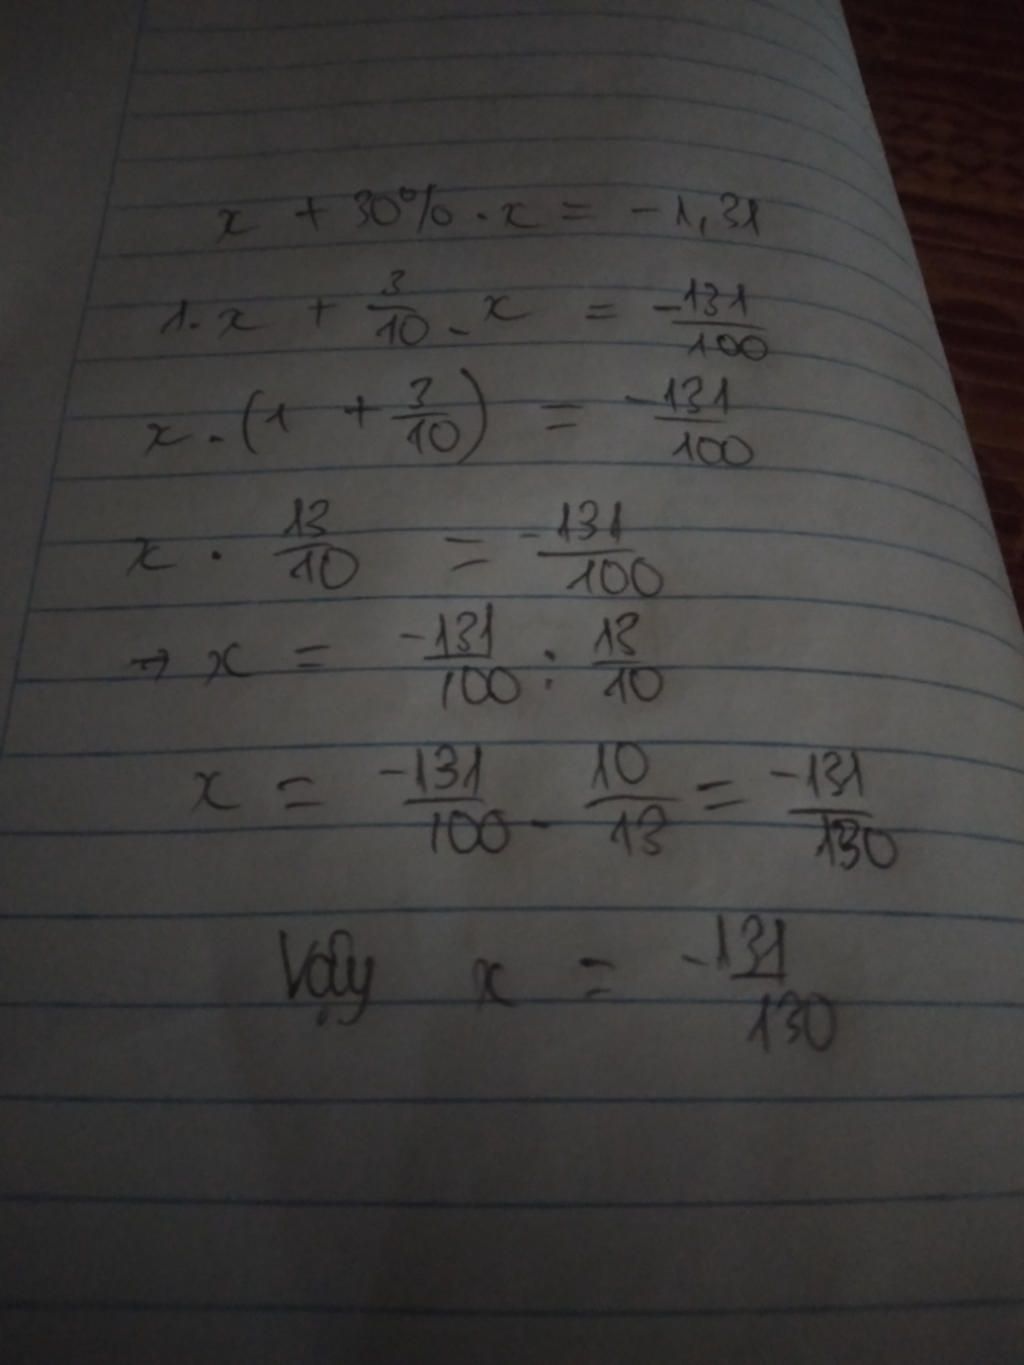 x + 30% . x = -1,31
1. x + 3/10 . x = -131/100
x . (1 + 3/10) = -131/100
x . 13/10 = -131/100
→ x = -131/100 : 13/10
x = -131/100 . 10/13 = -131/130
Vậy x = -131/130